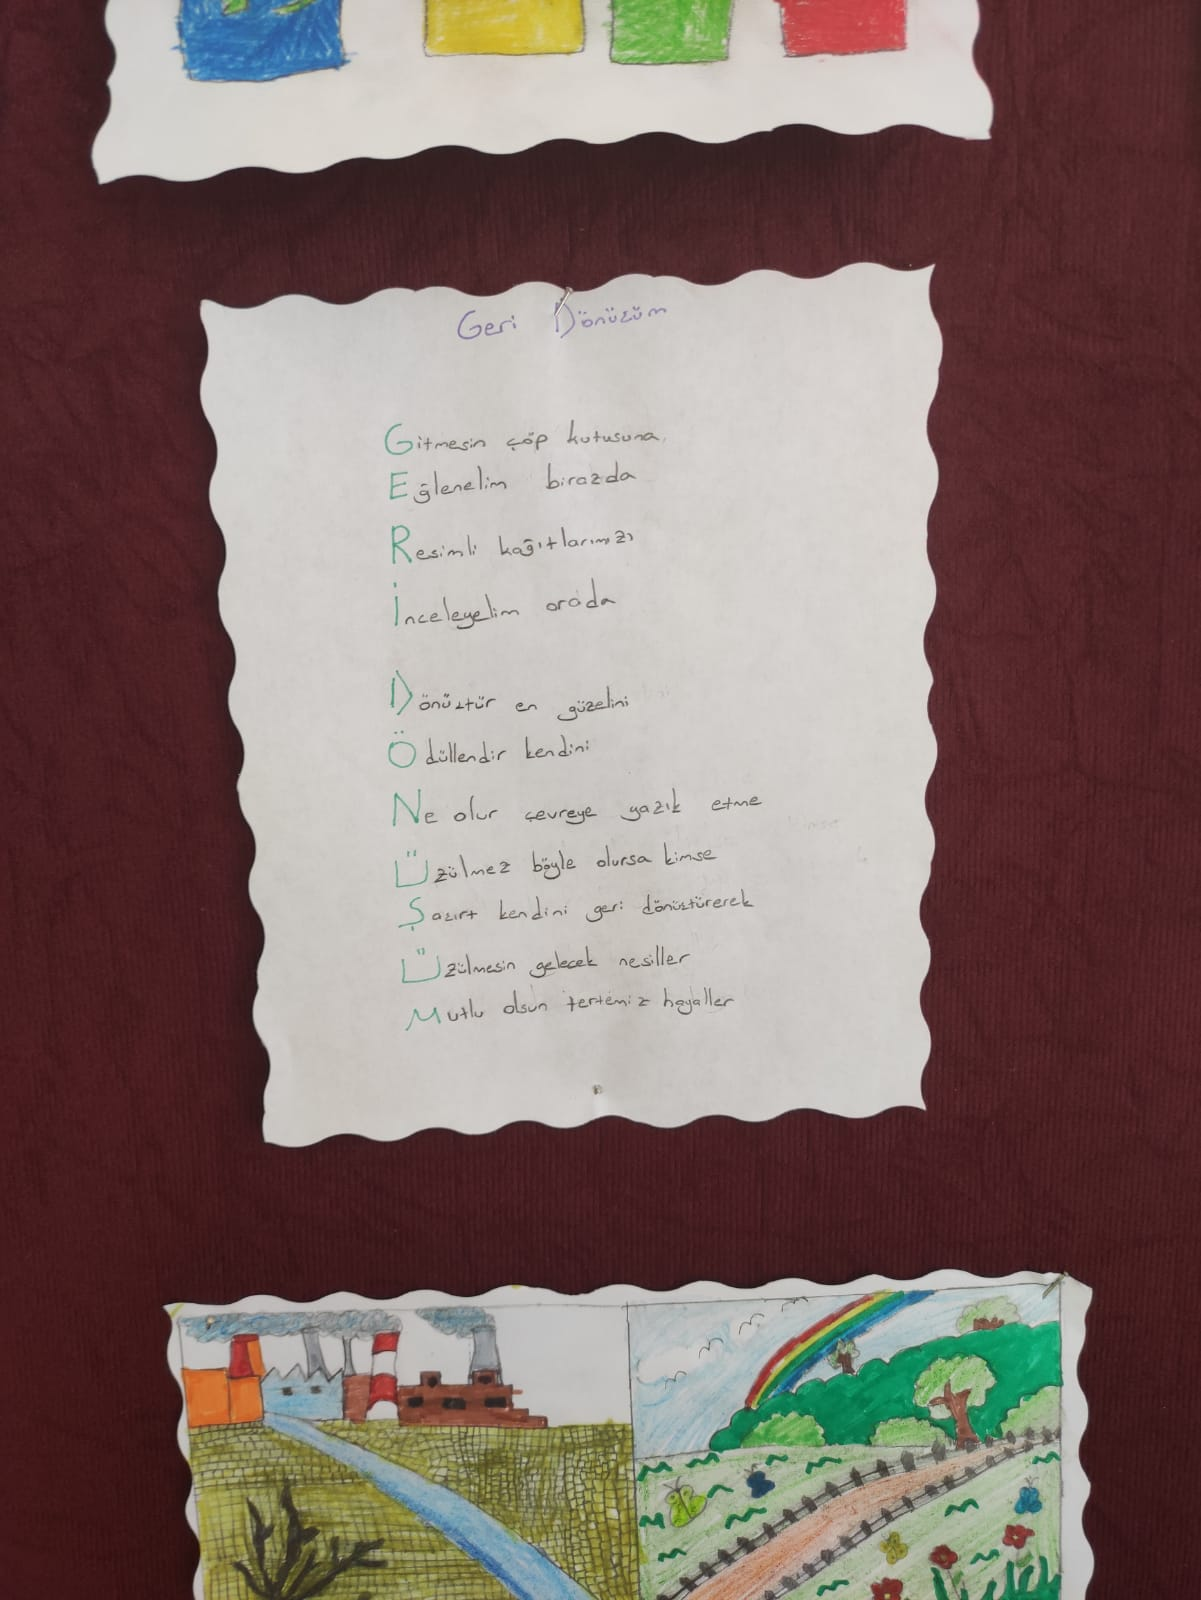 Geri Dönüşüm
Gitmesin çöp kutusuna,
Eğlenelim birazda
Resimli kağıtlarımızı
İnceleyelim orada
Dönüştür en güzelini
Ödüllendir kendini
Ne olur çevreye yazık etme
Üzülmez böyle olursa kimse
Şaşırt kendini geri dönüştürerek
Üzülmesin gelecek nesiller
Mutlu olsun tertemiz hayaller